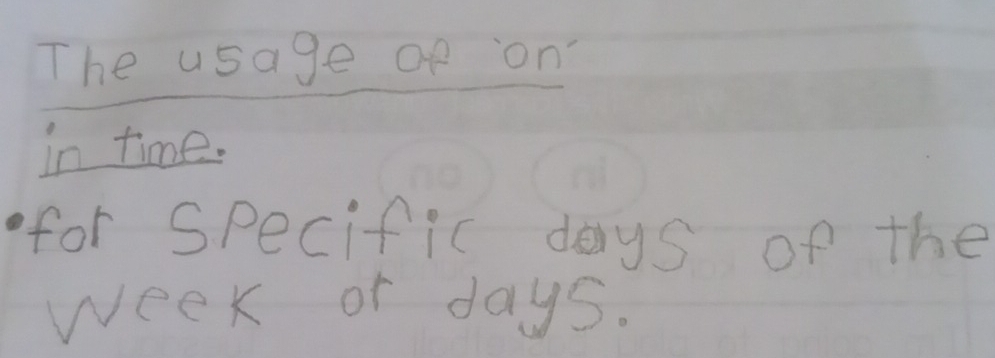 The usage of 'on'
in time.
•for specific days of the
week or days.